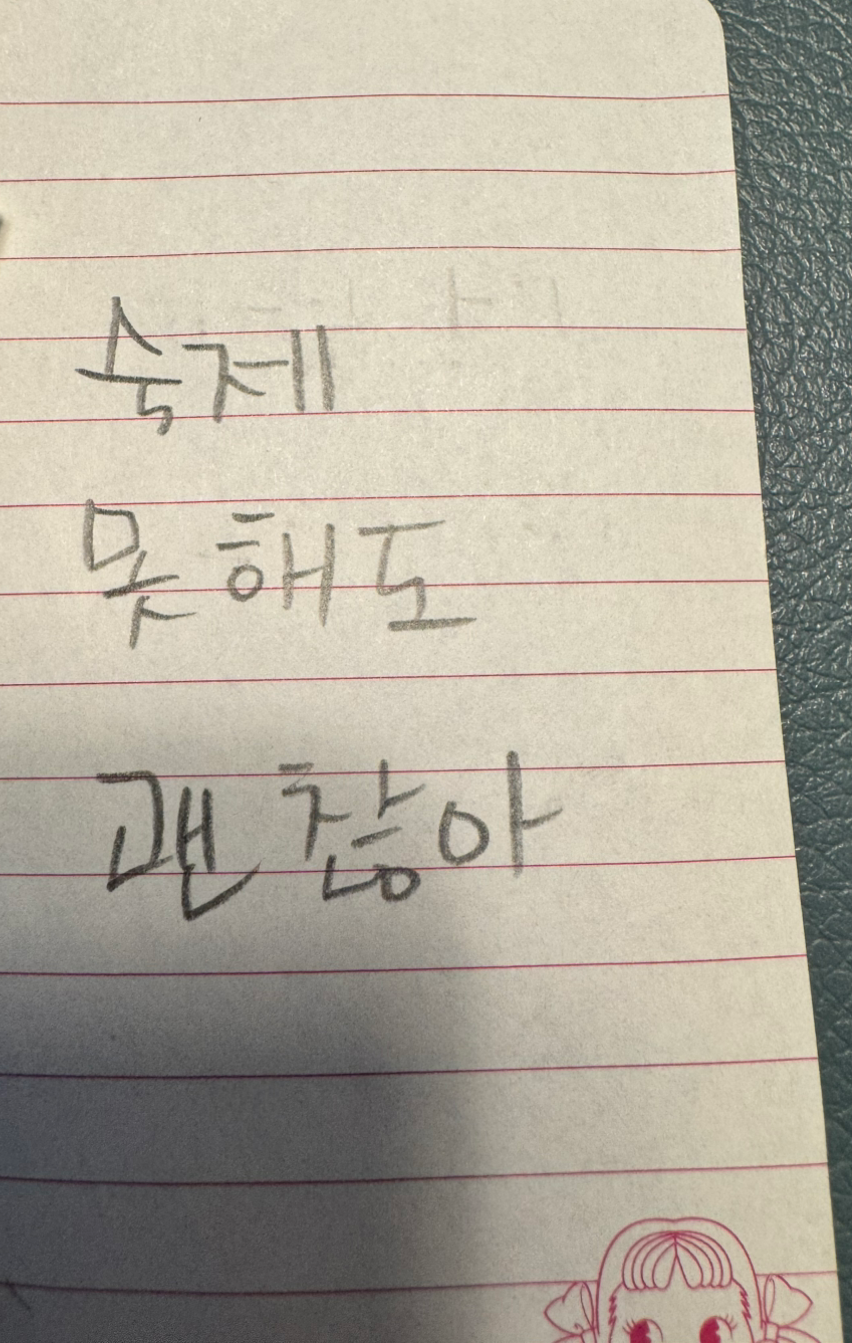 숙제
못해도
괜찮아